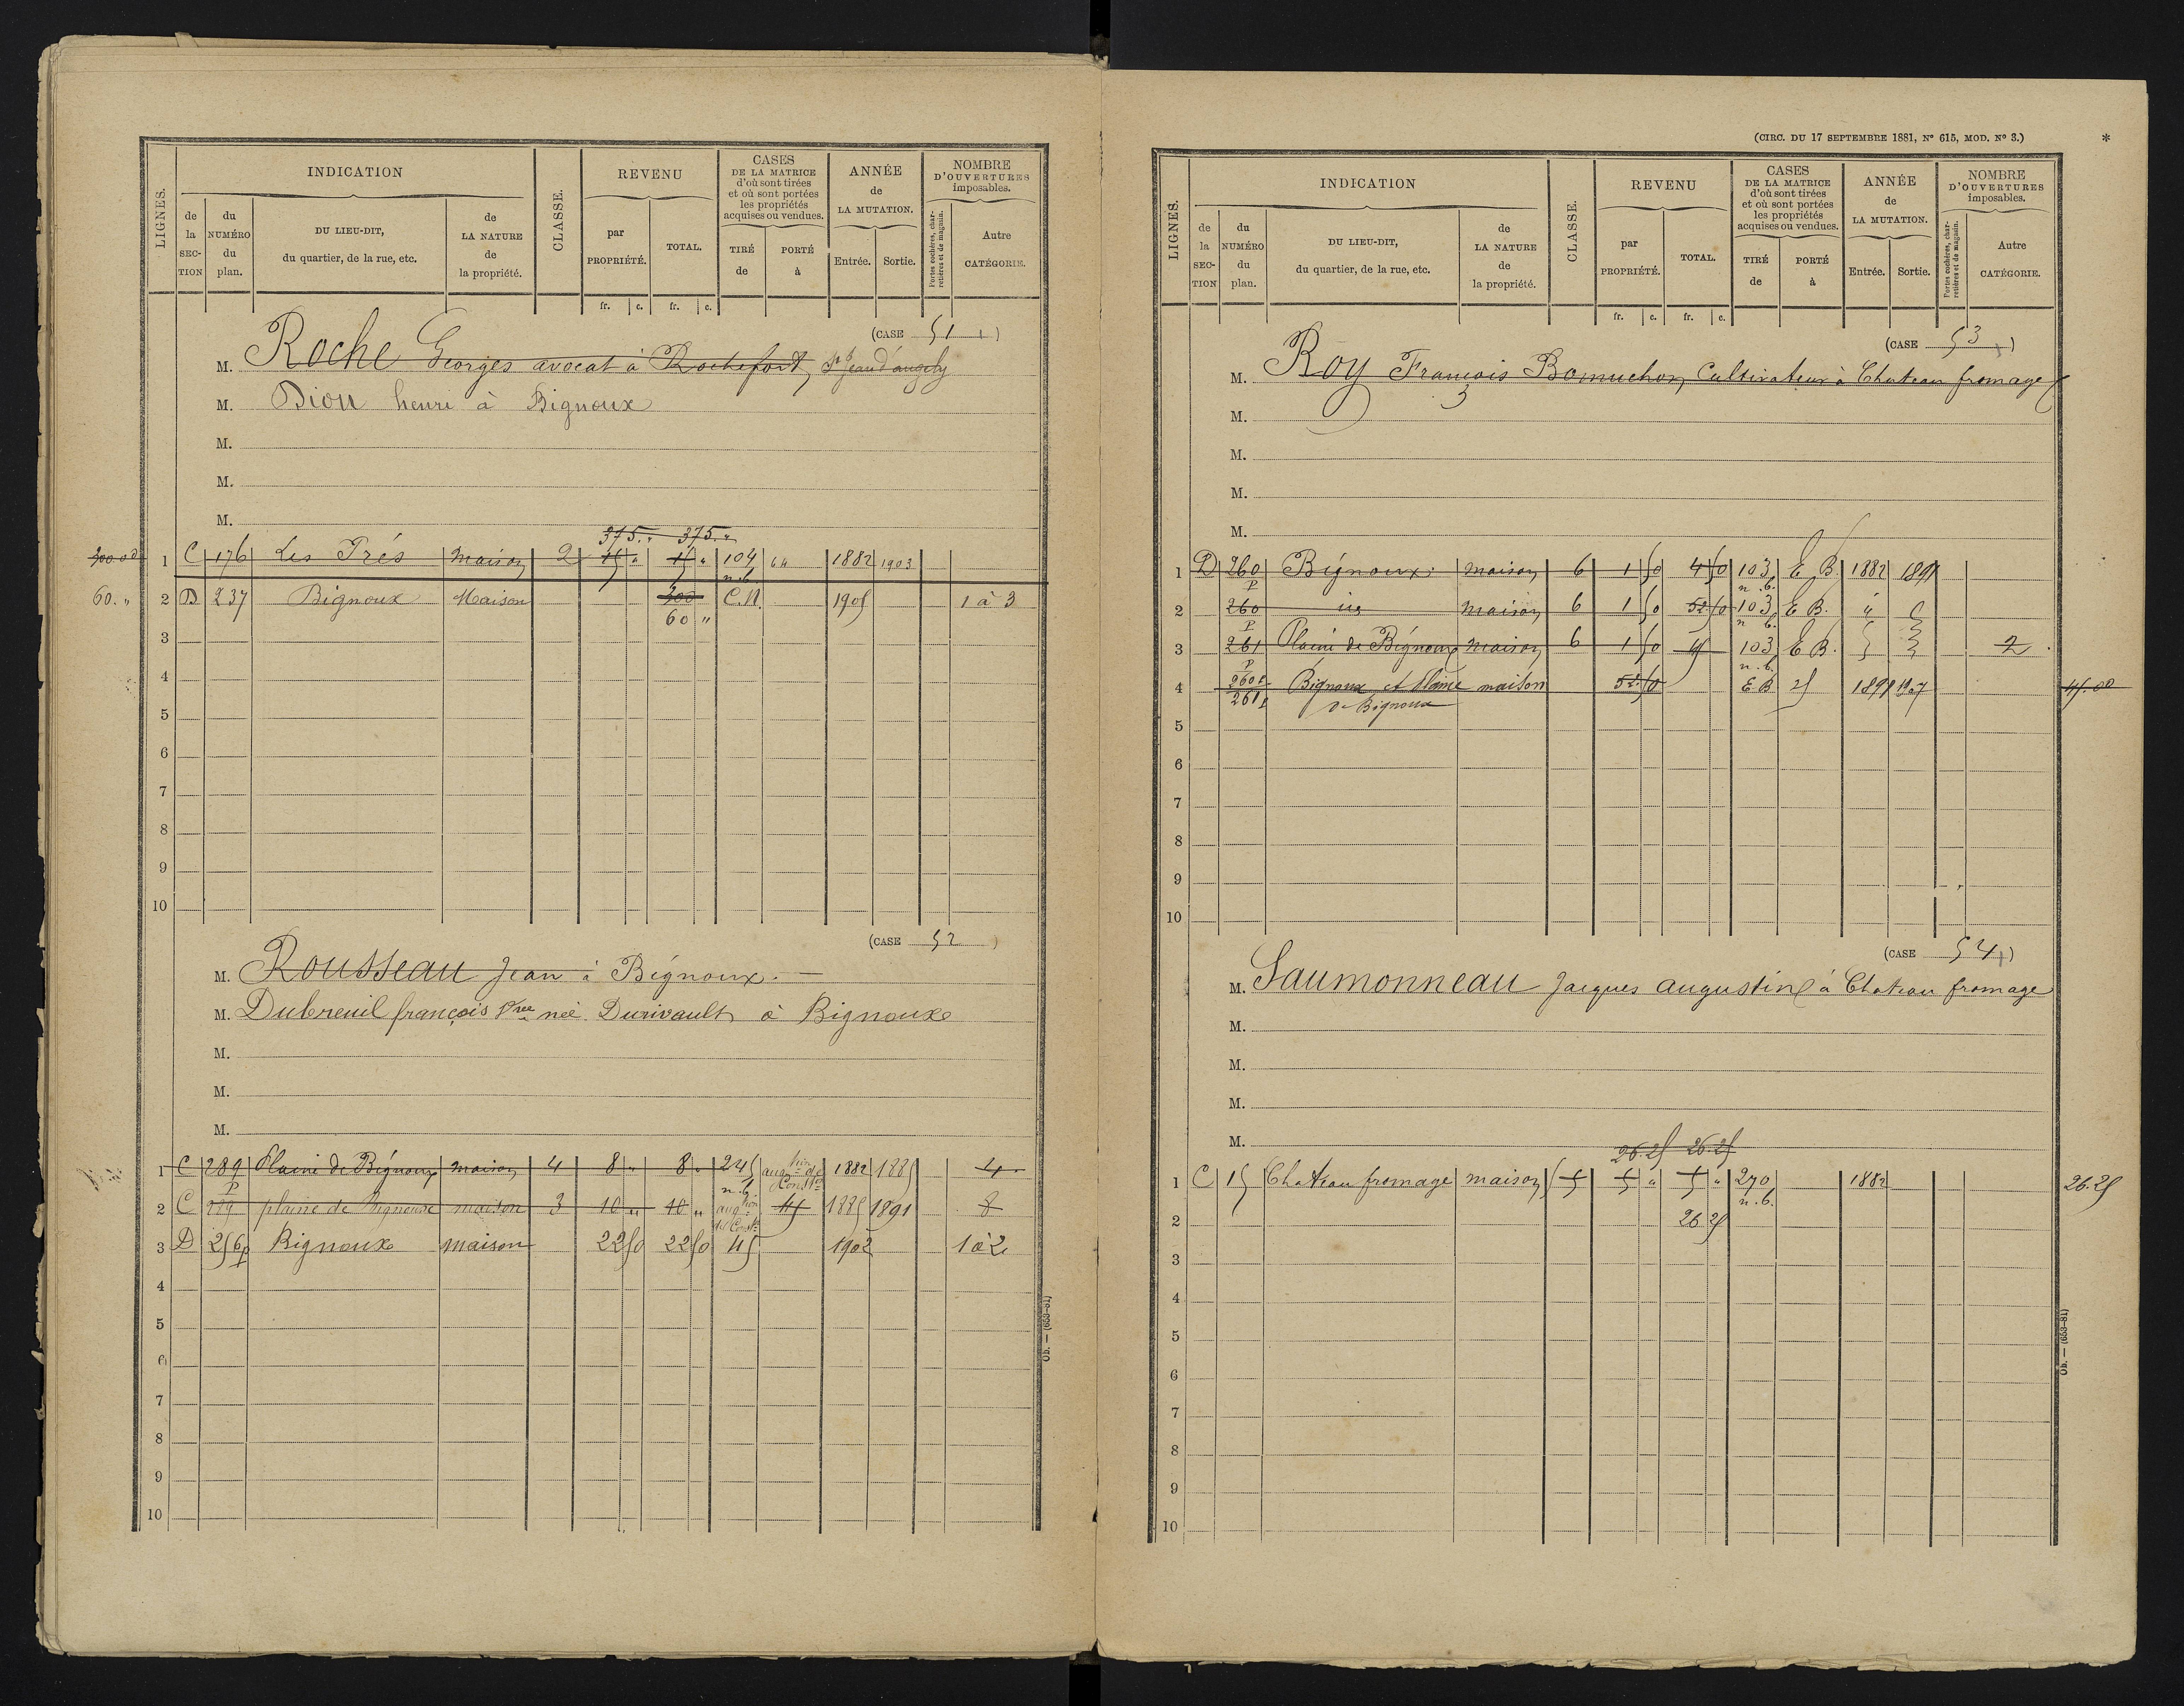 LIGNES.
INDICATION
de la SECTION
du NUMÉRO du plan.
DU LIEU-DIT, du quartier, de la rue, etc.
de LA NATURE de la propriété.
CLASSE.
REVENU
par PROPRIÉTÉ.
TOTAL.
fr. c. fr. c.
CASES DE LA MATRICE d'où sont tirées et où sont portées les propriétés acquises ou vendues.
TIRÉ de
PORTÉ à
ANNÉE de LA MUTATION.
Entrée. Sortie.
NOMBRE D'OUVERTURES imposables.
Portes cochères, charretières et de magasin.
Autre CATÉGORIE.
(CASE 51)
M. Roche Georges avocat à Rochefort, St Jean d'angely
M. Dion henri à Bignoux
M.
M.
M.
375. " 375. "
1 C 176 Les Prés maison 2 15 " 15 " 104 n.b. 64 1882 1903
60. " 2 D 237 Bignoux Maison 300 C.N. 1905 1 à 3
60 "
3
4
5
6
7
8
9
10
(CASE 52)
M. Rousseau Jean à Bignoux.
M. Dubreuil françois Vve née Durivault à Bignoux
M.
M.
M.
1 C 289 P Plaine de Bignoux maison 4 8 " 8 " 245 n.b. augtion de Constron 1882 1885 4
2 C 289 plaine de Bignoux maison 3 10 " 10 " augtion de Const. 45 1885 1891 8
3 D 256p Bignoux maison 22 50 22 50 45 1902 1 à 2
4
5
6
7
8
9
10
Ob. — (653-81)
(CIRC. DU 17 SEPTEMBRE 1881, N° 615, MOD. N° 3.) *
LIGNES.
INDICATION
de la SECTION
du NUMÉRO du plan.
DU LIEU-DIT, du quartier, de la rue, etc.
de LA NATURE de la propriété.
CLASSE.
REVENU
par PROPRIÉTÉ.
TOTAL.
fr. c. fr. c.
CASES DE LA MATRICE d'où sont tirées et où sont portées les propriétés acquises ou vendues.
TIRÉ de
PORTÉ à
ANNÉE de LA MUTATION.
Entrée. Sortie.
NOMBRE D'OUVERTURES imposables.
Portes cochères, charretières et de magasin.
Autre CATÉGORIE.
(CASE 53)
M. Roy François Cultivateur à Chateau fromage
M.
M.
M.
M.
1 D 260 P Bignoux. maison 6 1 50 4 50 103 n.b. E B. 1882 1891
2 260 P maison 6 1 50 52. 50 103 n.b. E B. "
3 261 P Plaine de Bignoux maison 6 1 50 45 103 n.b. E B. 2
4 260p 261p Bignoux et Plaine de Bignoux maison 52. 50 E B 25 1891 1907 45.00
5
6
7
8
9
10
(CASE 54)
M. Saumonneau Jacques augustin à Chateau fromage
M.
M.
M.
M.
26.25 26.25
1 C 15 Chateau fromage maison 5 5 " 5 " 270 n.b. 1882 26.25
2 26 25
3
4
5
6
7
8
9
10
Ob. — (653-81)